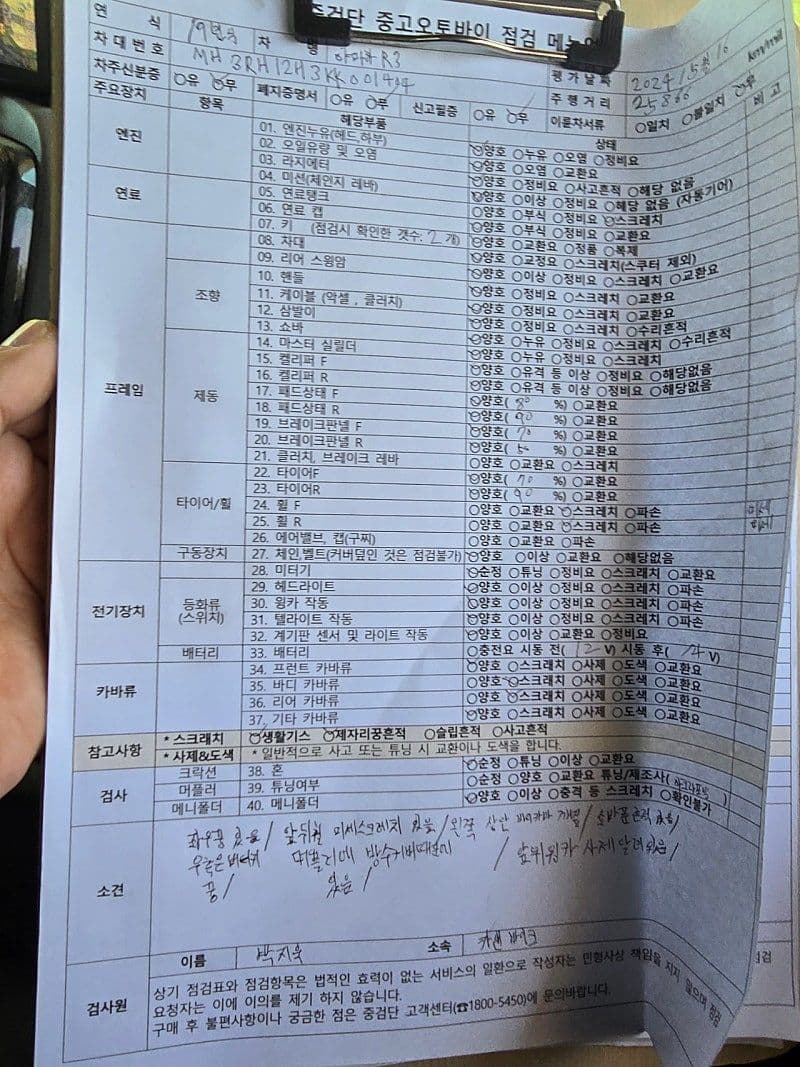 중검단 중고오토바이 점검 메뉴얼
연 식 19년식 차 명 야마하 R3
차대번호 MH3RH12H3KK001404 평가날짜 2024/5월/10
차주신분증 ○유 ○무 폐지증명서 ○유 ○무 신고필증 ○유 ○무 주행거리 25866 km/mil
이륜차서류 ○일치 ○불일치 ○무
주요장치 항목 해당부품 상태 비고
엔진 01. 엔진누유(헤드,하부) ○양호 ○누유 ○오염 ○정비요
02. 오일유량 및 오염 ○양호 ○오염 ○교환요
03. 라지에터 ○양호 ○정비요 ○사고흔적 ○해당 없음
04. 미션(체인지 레바) ○양호 ○이상 ○정비요 ○해당 없음 (자동기어)
연료 05. 연료탱크 ○양호 ○부식 ○정비요 ○스크레치
06. 연료 캡 ○양호 ○부식 ○정비요 ○교환요
프레임 07. 키 (점검시 확인한 갯수: 2 개) ○양호 ○교환요 ○정품 ○복제
08. 차대 ○양호 ○교정요 ○스크레치(스쿠터 제외)
09. 리어 스윙암 ○양호 ○이상 ○정비요 ○스크레치 ○교환요
조향 10. 핸들 ○양호 ○정비요 ○스크레치 ○교환요
11. 케이블 (악셀 , 클러치) ○양호 ○정비요 ○스크레치 ○교환요
12. 삼발이 ○양호 ○정비요 ○스크레치 ○수리흔적
13. 쇼바 ○양호 ○누유 ○정비요 ○스크레치 ○수리흔적
제동 14. 마스터 실릴더 ○양호 ○누유 ○정비요 ○스크레치
15. 캘리퍼 F ○양호 ○유격 등 이상 ○정비요 ○해당없음
16. 켈리퍼 R ○양호 ○유격 등 이상 ○정비요 ○해당없음
17. 패드상태 F ○양호( 80 %) ○교환요
18. 패드상태 R ○양호( 90 %) ○교환요
19. 브레이크판넬 F ○양호( 70 %) ○교환요
20. 브레이크판넬 R ○양호( %) ○교환요
21. 클러치, 브레이크 레바 ○양호 ○교환요 ○스크레치
타이어/휠 22. 타이어F ○양호( 70 %) ○교환요
23. 타이어R ○양호( 90 %) ○교환요
24. 휠 F ○양호 ○교환요 ○스크레치 ○파손 미세
25. 휠 R ○양호 ○교환요 ○스크레치 ○파손 미세
26. 에어밸브, 캡(구찌) ○양호 ○교환요 ○파손
구동장치 27. 체인,벨트(커버덮인 것은 점검불가) ○양호 ○이상 ○교환요 ○해당없음
전기장치 28. 미터기 ○순정 ○튜닝 ○정비요 ○스크레치 ○교환요
등화류 (스위치) 29. 헤드라이트 ○양호 ○이상 ○정비요 ○스크레치 ○파손
30. 윙카 작동 ○양호 ○이상 ○정비요 ○스크레치 ○파손
31. 텔라이트 작동 ○양호 ○이상 ○정비요 ○스크레치 ○파손
32. 계기판 센서 및 라이트 작동 ○양호 ○이상 ○교환요 ○정비요
배터리 33. 배터리 ○충전요 시동 전( 12 V) 시동 후( 14 V)
카바류 34. 프런트 카바류 ○양호 ○스크레치 ○사제 ○도색 ○교환요
35. 바디 카바류 ○양호 ○스크레치 ○사제 ○도색 ○교환요
36. 리어 카바류 ○양호 ○스크레치 ○사제 ○도색 ○교환요
37. 기타 카바류 ○양호 ○스크레치 ○사제 ○도색 ○교환요
참고사항 * 스크래치 ○생활기스 ○제자리꿍흔적 ○슬립흔적 ○사고흔적
* 사제&도색 * 일반적으로 사고 또는 튜닝 시 교환이나 도색을 합니다.
검사 크락션 38. 혼 ○순정 ○튜닝 ○이상 ○교환요
머플러 39. 튜닝여부 ○순정 ○양호 ○교환요 튜닝/제조사(
메니폴더 40. 메니폴더 ○양호 ○이상 ○충격 등 스크레치 ○확인불가
소견 좌우꿍 있음/ 앞뒤휠 미세스크레치 있음/ 왼쪽 상단
꿍/ 머플러에 방수커버때문에 있음/ 앞뒤윙카 사제 달려있음/
이름 박지욱 소속
검사원 상기 점검표와 점검항목은 법적인 효력이 없는 서비스의 일환으로 작성자는 민형사상 책임을 지지 않으며 점검
요청자는 이에 이의를 제기 하지 않습니다.
구매 후 불편사항이나 궁금한 점은 중검단 고객센터(☎1800-5450)에 문의바랍니다.